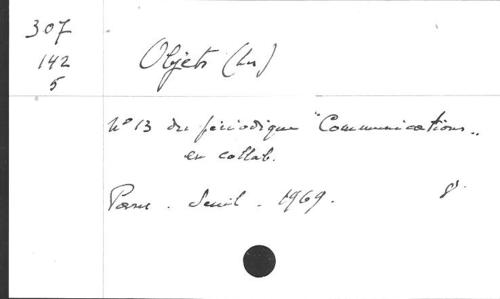 307
142
5
Objets (Les)
N° 13 du périodique "Communications"
en collab.
Paris. Seuil. 1969. 8°.